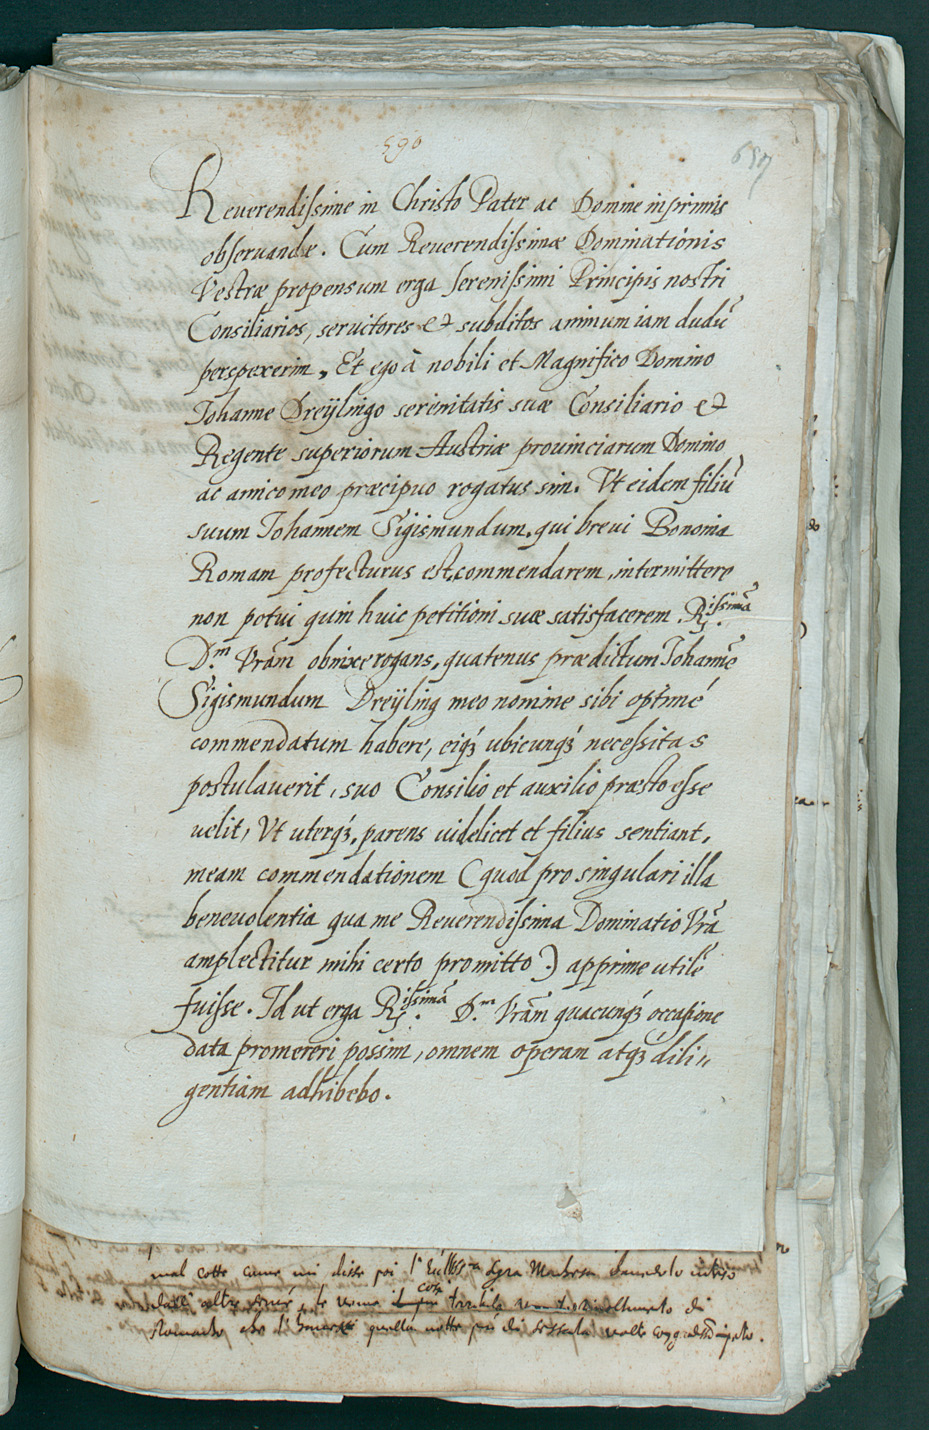 590
Reverendissime in Christo Pater ac Domine inprimis
observande. Cum Reverendissimæ Dominationis
Vestræ propensum erga serenissimi Principis nostri
Consiliarios, servitores et subditos animum iam dudū
perspexerim, Et ego à nobili et Magnifico Domino
Iohanne Dreÿlingo serenitatis suæ Consiliario et
Regente superiorum Austriæ provinciarum Domino
ac amico meo præcipuo rogatus sim. Vt eidem filiū
suum Iohannem Sigismundum, qui brevi Bononia
Romam profecturus est, commendarem, intermittere
non potui quin huic petitioni suæ satisfacerem. R.issimā
D.m Vrām obnixe rogans, quatenus prædictum Iohannē
Sigismundum Dreÿling meo nomine sibi optimé
commendatum habere, eiq́ꝫ ubicunq́ꝫ necessitas
postulaverit, suo Consilio et auxilio præsto esse
velit, Vt uterq́ꝫ, parens videlicet et filius sentiant,
meam commendationem (quod pro singulari illa
benevolentia qua me Reverendissima Dominatio Vrā
amplectitur mihi certo promitto) apprime utilē
fuisse. Id ut erga R.issimā D.m Vrām quacunq́ꝫ occasione
data promereri possim, omnem operam atq́ꝫ dili„
gentiam adhibebo.
mal cotte come mi disse poi l'
altre
stomacho che l' quella notte più di sessanta volte